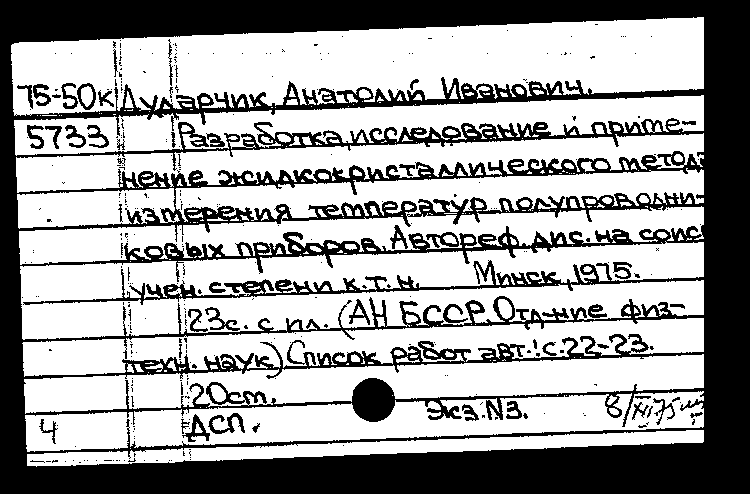 75-50к Дударчик, Анатолий Иванович.
5733 Разработка, исследование и приме-
нение жидкокристаллического метода
измерения температур полупроводни-
ковых приборов. Автореф. дис. на соиск
учен. степени к.т.н. Минск, 1975.
23с. с ил. (АН БССР. Отд-ние физ-
техн. наук) Список работ авт.: с.22-23.
20cm.
Экз. N3. 8/XI 75
4 ДСП.